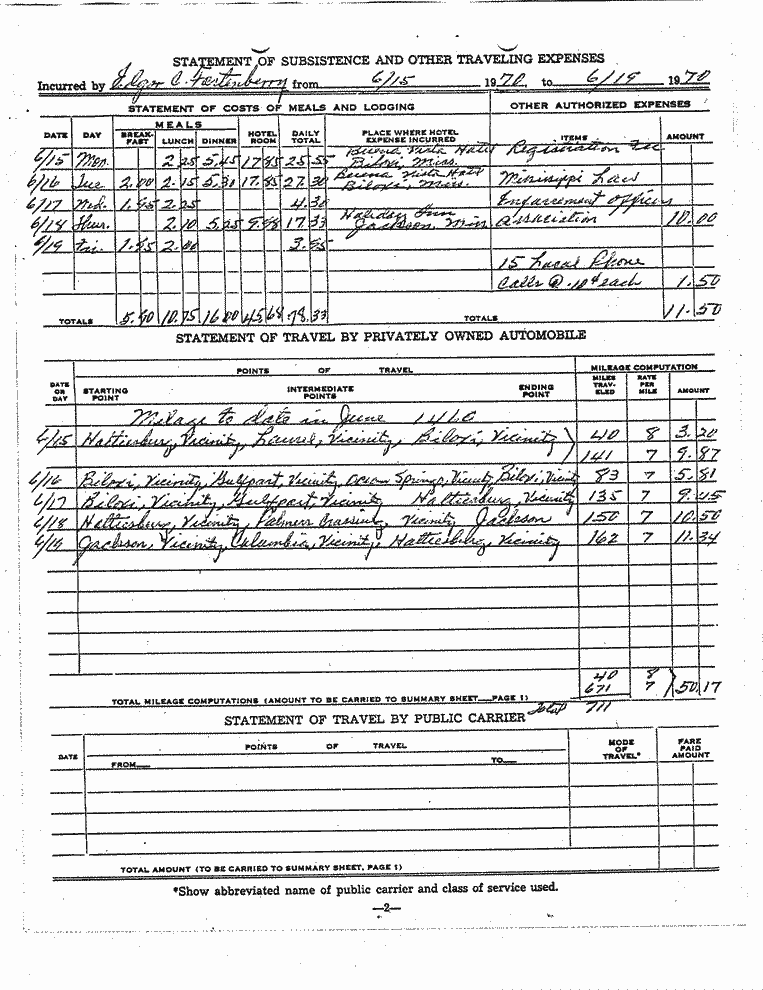 STATEMENT OF SUBSISTENCE AND OTHER TRAVELING EXPENSES
Incurred by Edgar C. Fortenberry from 6/15 1970 to 6/19 1970
STATEMENT OF COSTS OF MEALS AND LODGING OTHER AUTHORIZED EXPENSES
DATE DAY MEALS BREAK-FAST LUNCH DINNER HOTEL ROOM DAILY TOTAL PLACE WHERE HOTEL EXPENSE INCURRED ITEMS AMOUNT
6/15 Mon. 2.25 5.45 17.85 25.55 Buena Vista Hotel Biloxi, Miss. Registration Fee
6/16 Tue 2.00 2.15 5.30 17.85 27.30 Buena Vista Hotel Biloxi, Miss. Mississippi Law
6/17 Wed. 2.25 4.30 Enforcement Officers
6/18 Thur. 2.10 5.25 9.98 17.33 Holiday Inn Jackson, Miss Association 10.00
6/19 Fri. 2.00
15 Local Phone
Calls @ .10¢ each 1.50
TOTALS 10.75 16.00 45.68 78.33 TOTALS 11.50
STATEMENT OF TRAVEL BY PRIVATELY OWNED AUTOMOBILE
DATE OR DAY POINTS OF TRAVEL MILEAGE COMPUTATION
STARTING POINT INTERMEDIATE POINTS ENDING POINT MILES TRAV-ELED RATE PER MILE AMOUNT
Milage to date in June 1410
6/15 Hattiesburg, Vicinity, Laurel, Vicinity, Biloxi, Vicinity 40 8 3.20
141 7 9.87
6/16 Biloxi, Vicinity, Gulfport, Vicinity, Ocean Springs, Vicinity, Biloxi, Vicinity 83 7 5.81
6/17 Biloxi, Vicinity, Gulfport, Vicinity Hattiesburg, Vicinity 135 7 9.45
6/18 Hattiesburg, Vicinity, Palmers Crossing, Vicinity Jackson 150 7 10.50
6/19 Jackson, Vicinity, Columbia, Vicinity, Hattiesburg, Vicinity 162 7 11.34
40 8
671 7 50.17
TOTAL MILEAGE COMPUTATIONS (AMOUNT TO BE CARRIED TO SUMMARY SHEET PAGE 1) Total 711
STATEMENT OF TRAVEL BY PUBLIC CARRIER
DATE POINTS OF TRAVEL MODE OF TRAVEL* FARE PAID AMOUNT
FROM TO
TOTAL AMOUNT (TO BE CARRIED TO SUMMARY SHEET, PAGE 1)
*Show abbreviated name of public carrier and class of service used.
—2—